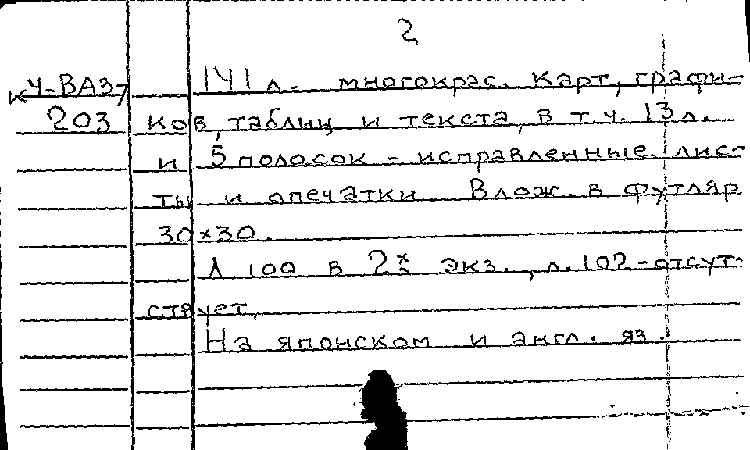 2
КЧ-ВАЗ7 141 л. многокрас. карт, графи-
203 ков, таблиц и текста, в т.ч. 13 л.
и 5 полосок - исправленные лис-
ты и опечатки. Влож. в футляр
30×30.
Л 100 в 2х экз., л. 102-отсут-
ствует.
На японском и англ. яз.